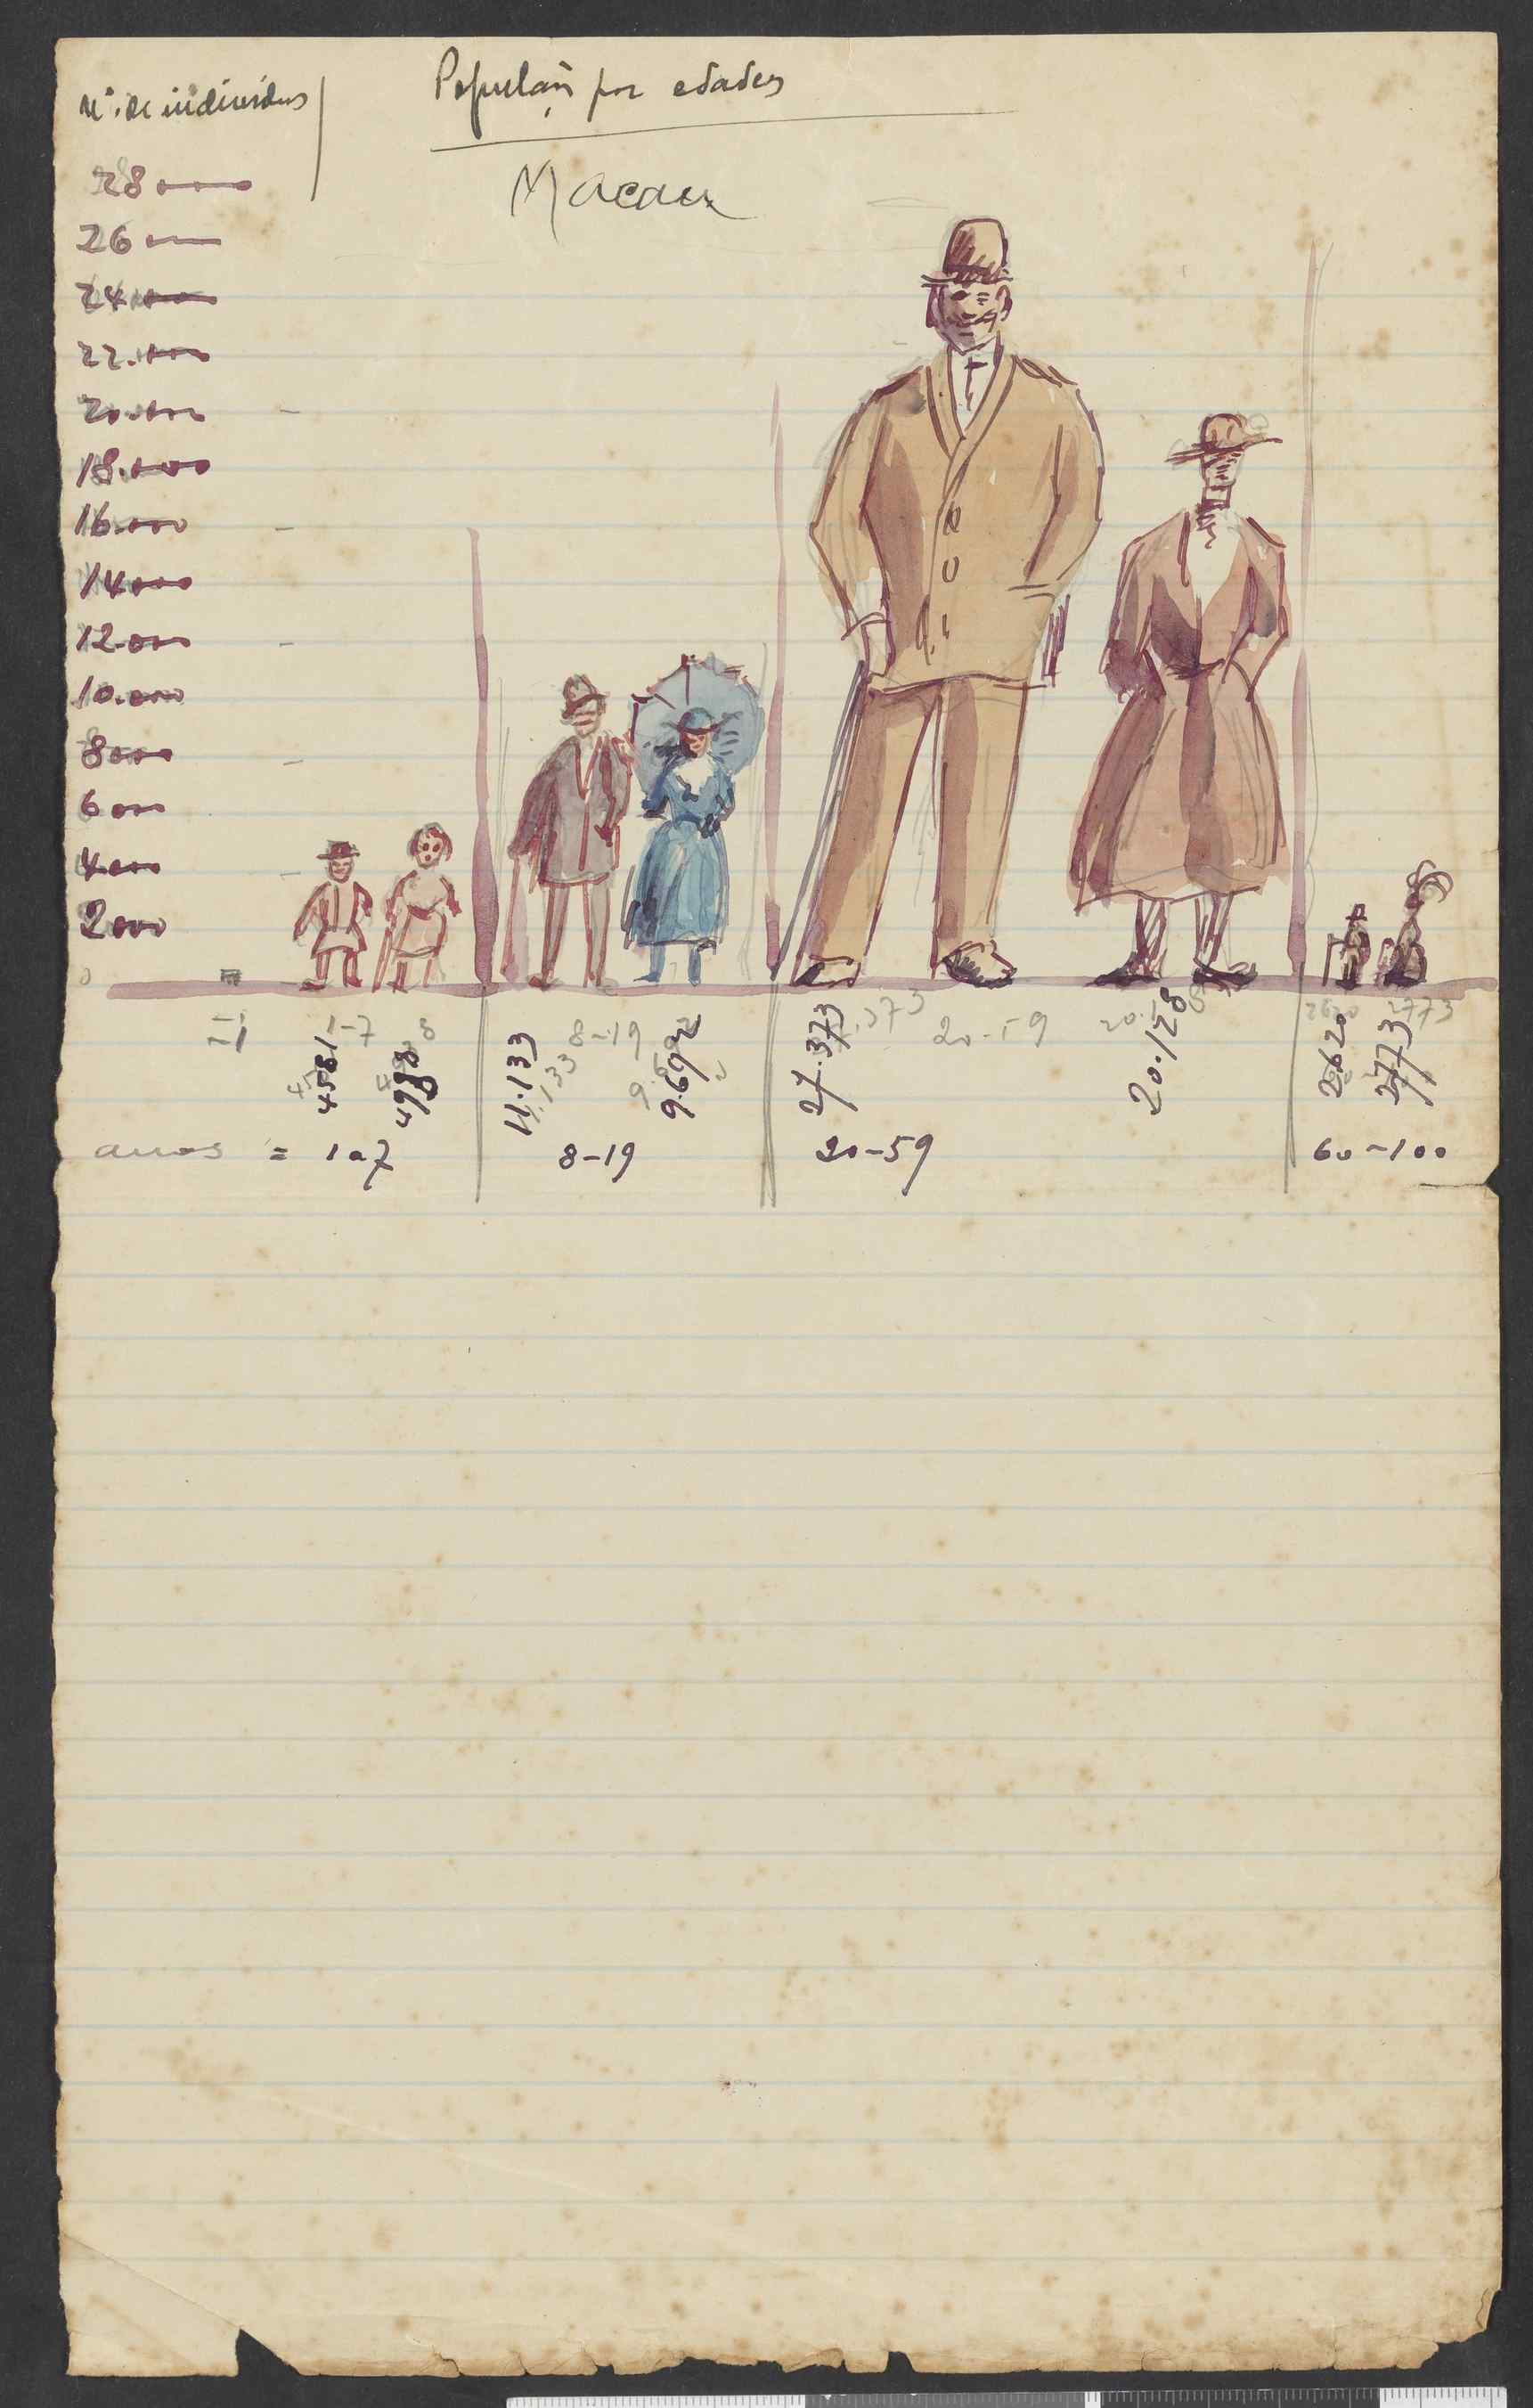 Nº. de individuos
População por edades
Macau
28000
26000
24.000
22.000
20.000
18.000
16.000
14000
12.000
10.000
8000
6000
4.000
2000
0
-1 1-7 8-19 20-59
4581 4988 11.133 9.692 27.373 20.128 2620 2773
11.133 27.373 2620 2773
annos = 1 a 7 8-19 20-59 60-100